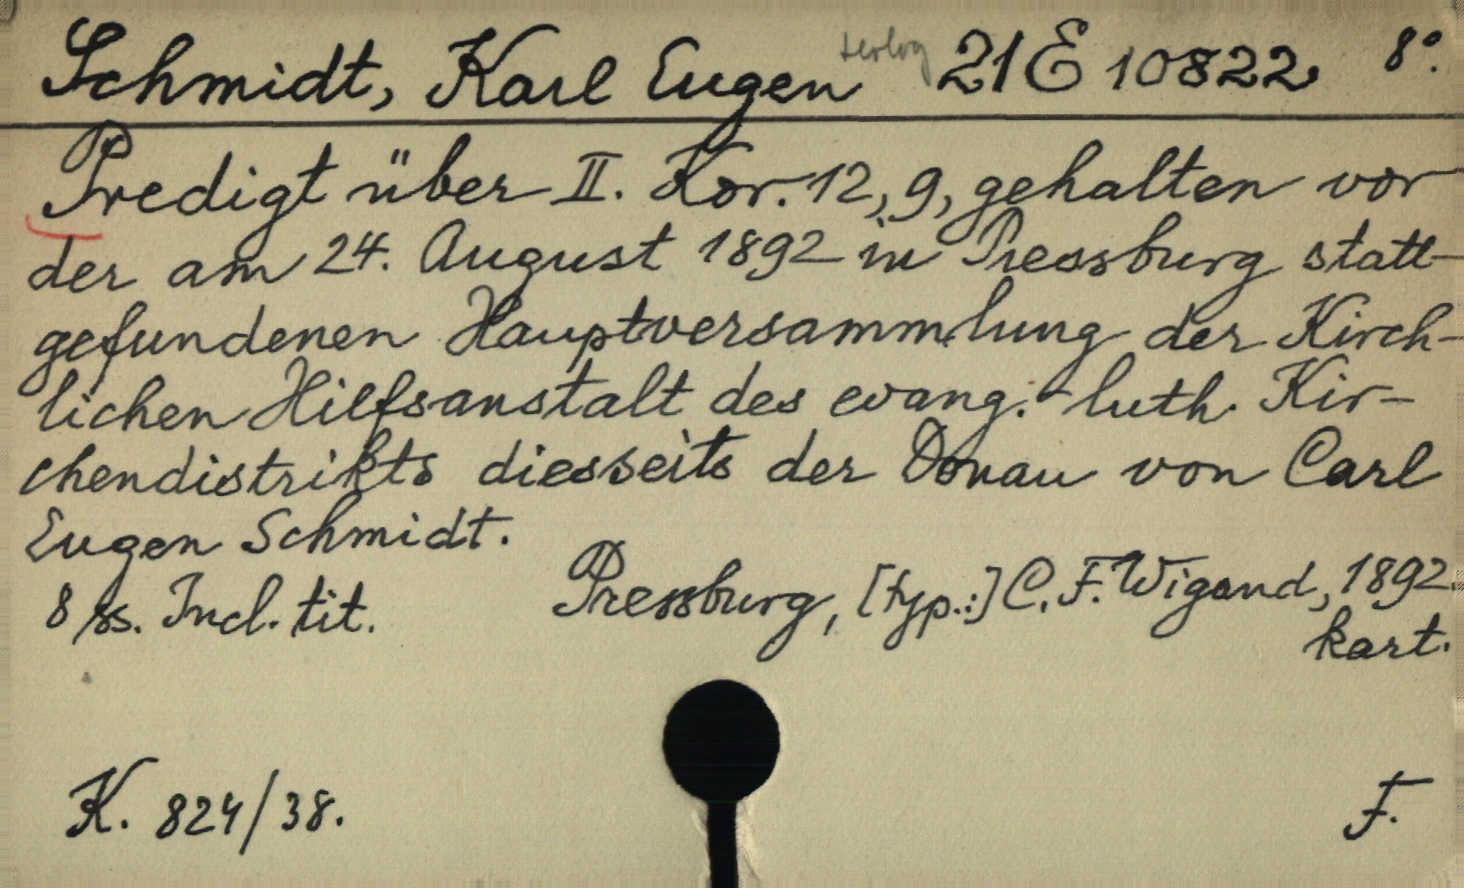 Schmidt, Karl Eugen 21 E 10822 8°.
Predigt über II. Kor. 12,9, gehalten vor
der am 24. August 1892 in Pressburg statt-
gefundenen Hauptversammlung der Kirch-
lichen Hilfsanstalt des evang.-luth. Kir-
chendistrikts diesseits der Donau von Carl
Eugen Schmidt.
8 ss. Incl. tit. Pressburg, [typ.:] C. F. Wigand, 1892.
kart.
K. 824/38. F.